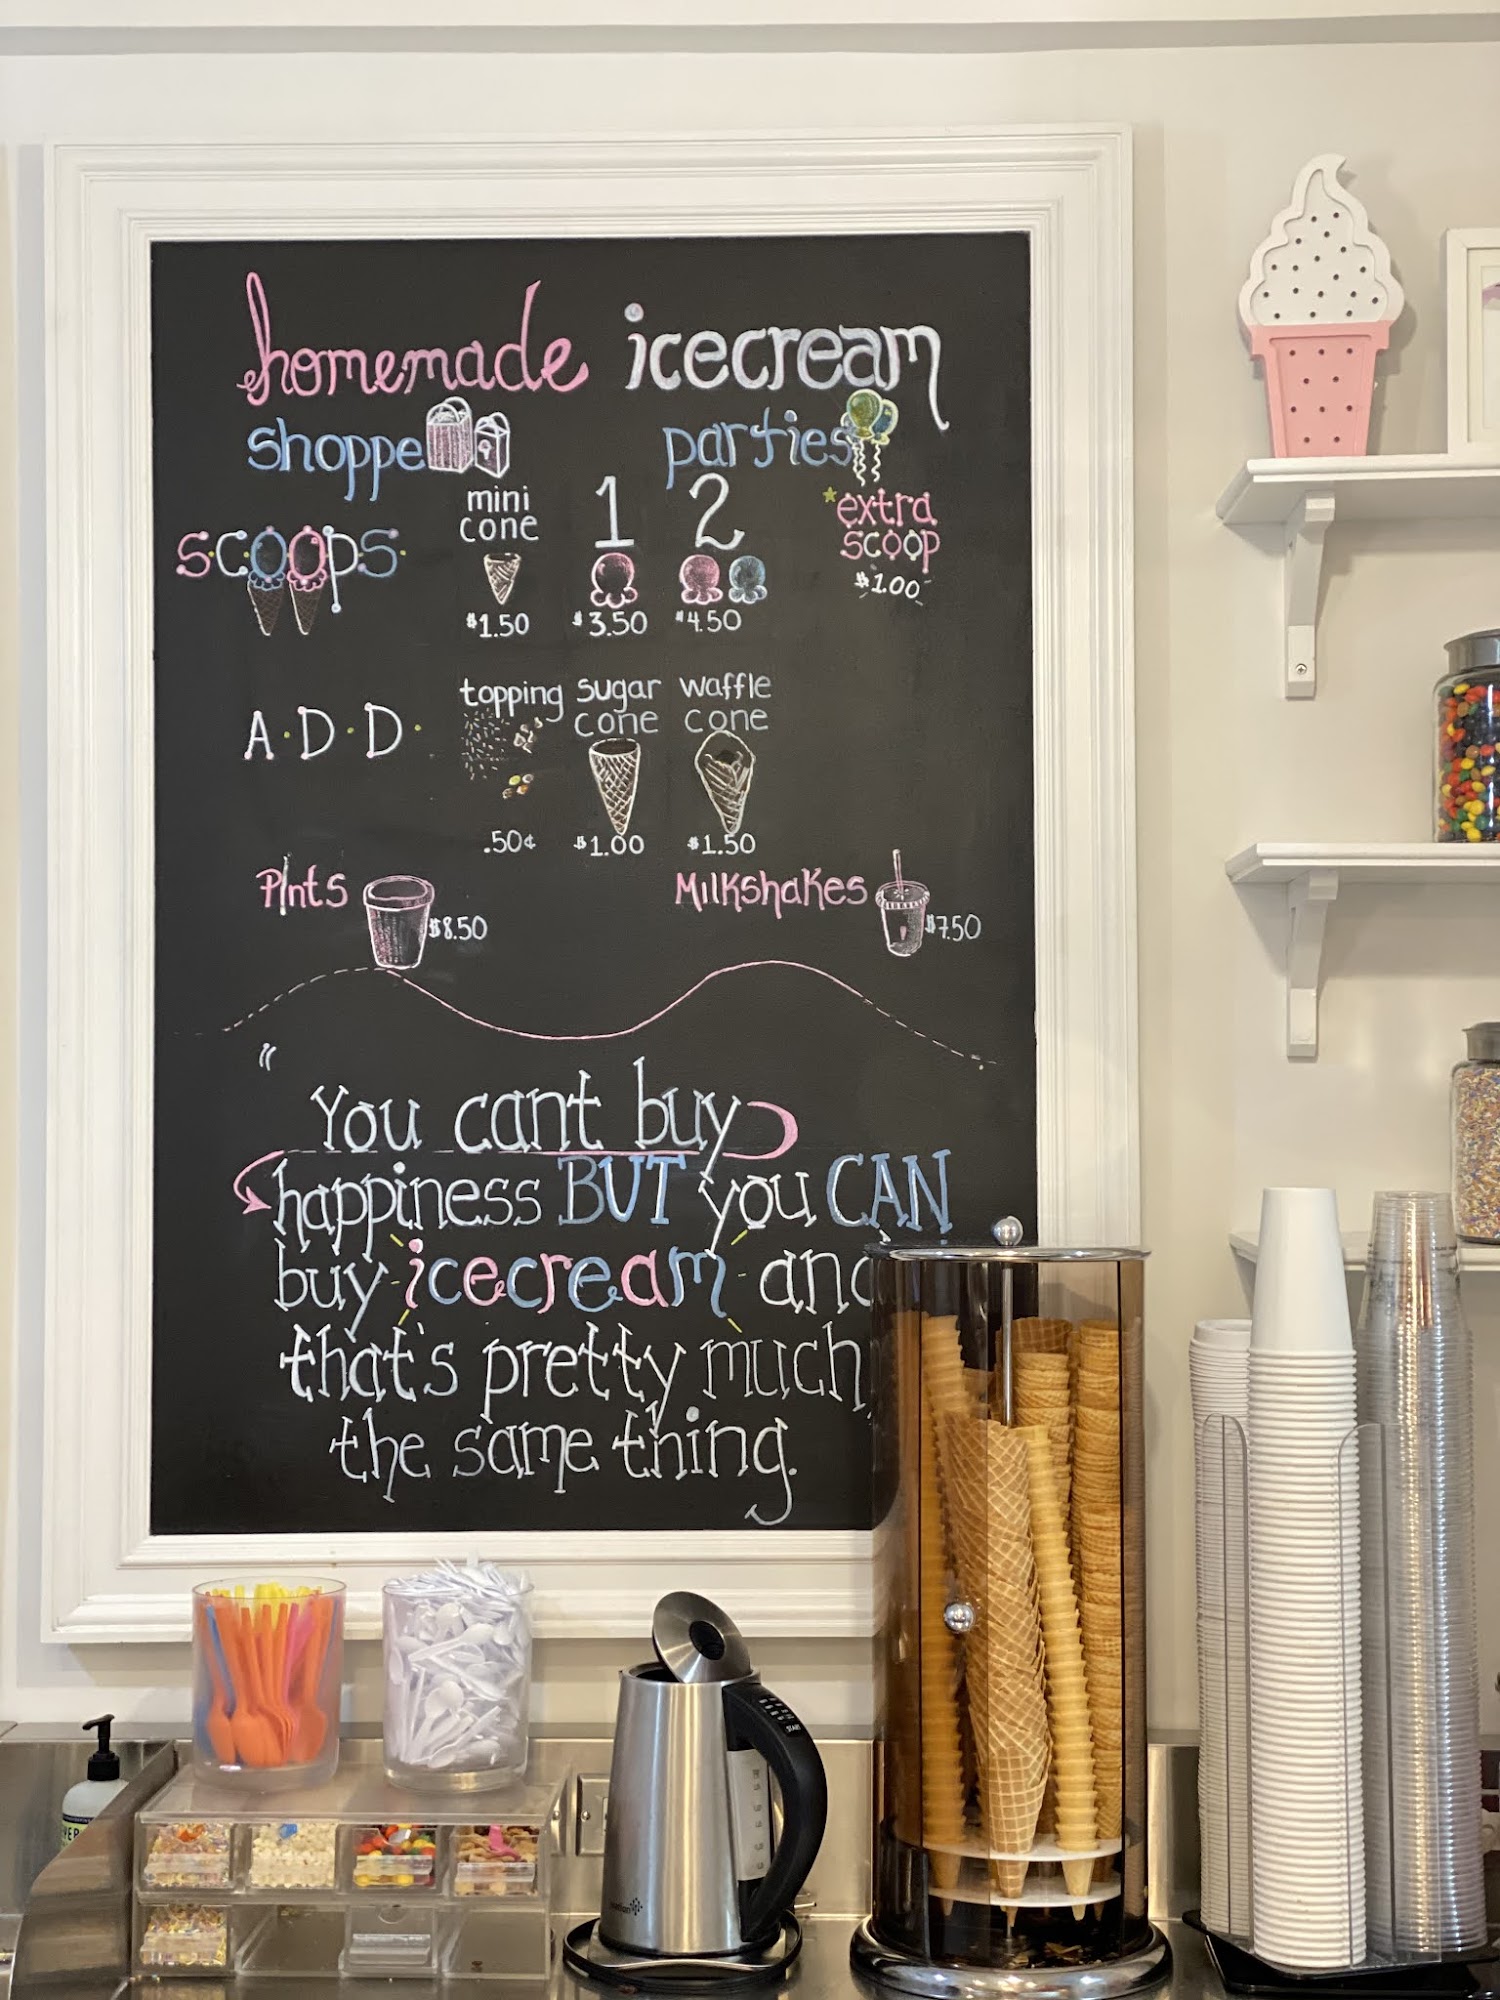 homemade icecream
shoppe parties
SCOOPS.
mini cone
$1.50
1
$3.50
2
$4.50
*extra scoop
$1.00
A.D.D.
topping
.50¢
sugar cone
$1.00
waffle cone
$1.50
PInts $8.50
MilkshakeS $7.50
"
You cant buy
happiness BUT you CAN
buy icecream and
that's pretty much
the same thing.
START